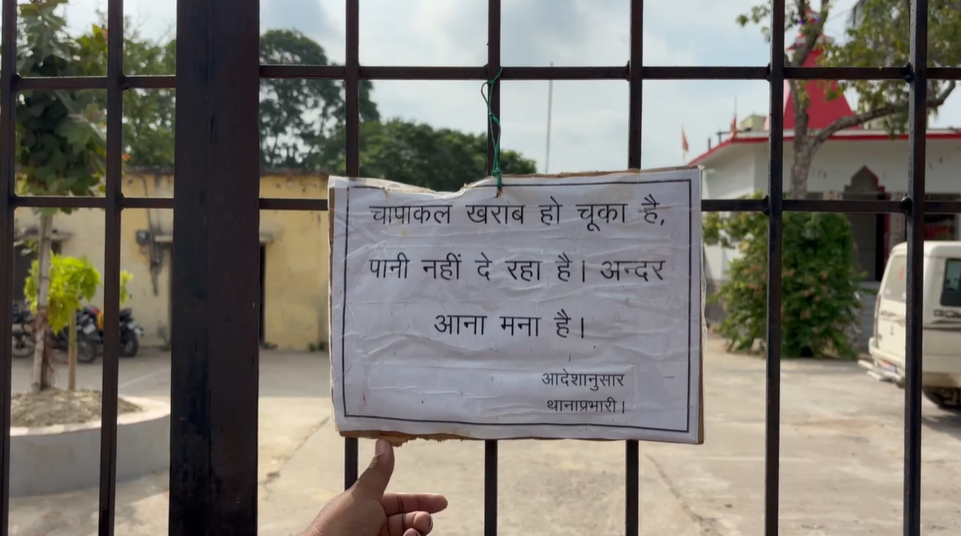 चापाकल खराब हो चूका है,
पानी नहीं दे रहा है। अन्दर
आना मना है।
आदेशानुसार
थानाप्रभारी।